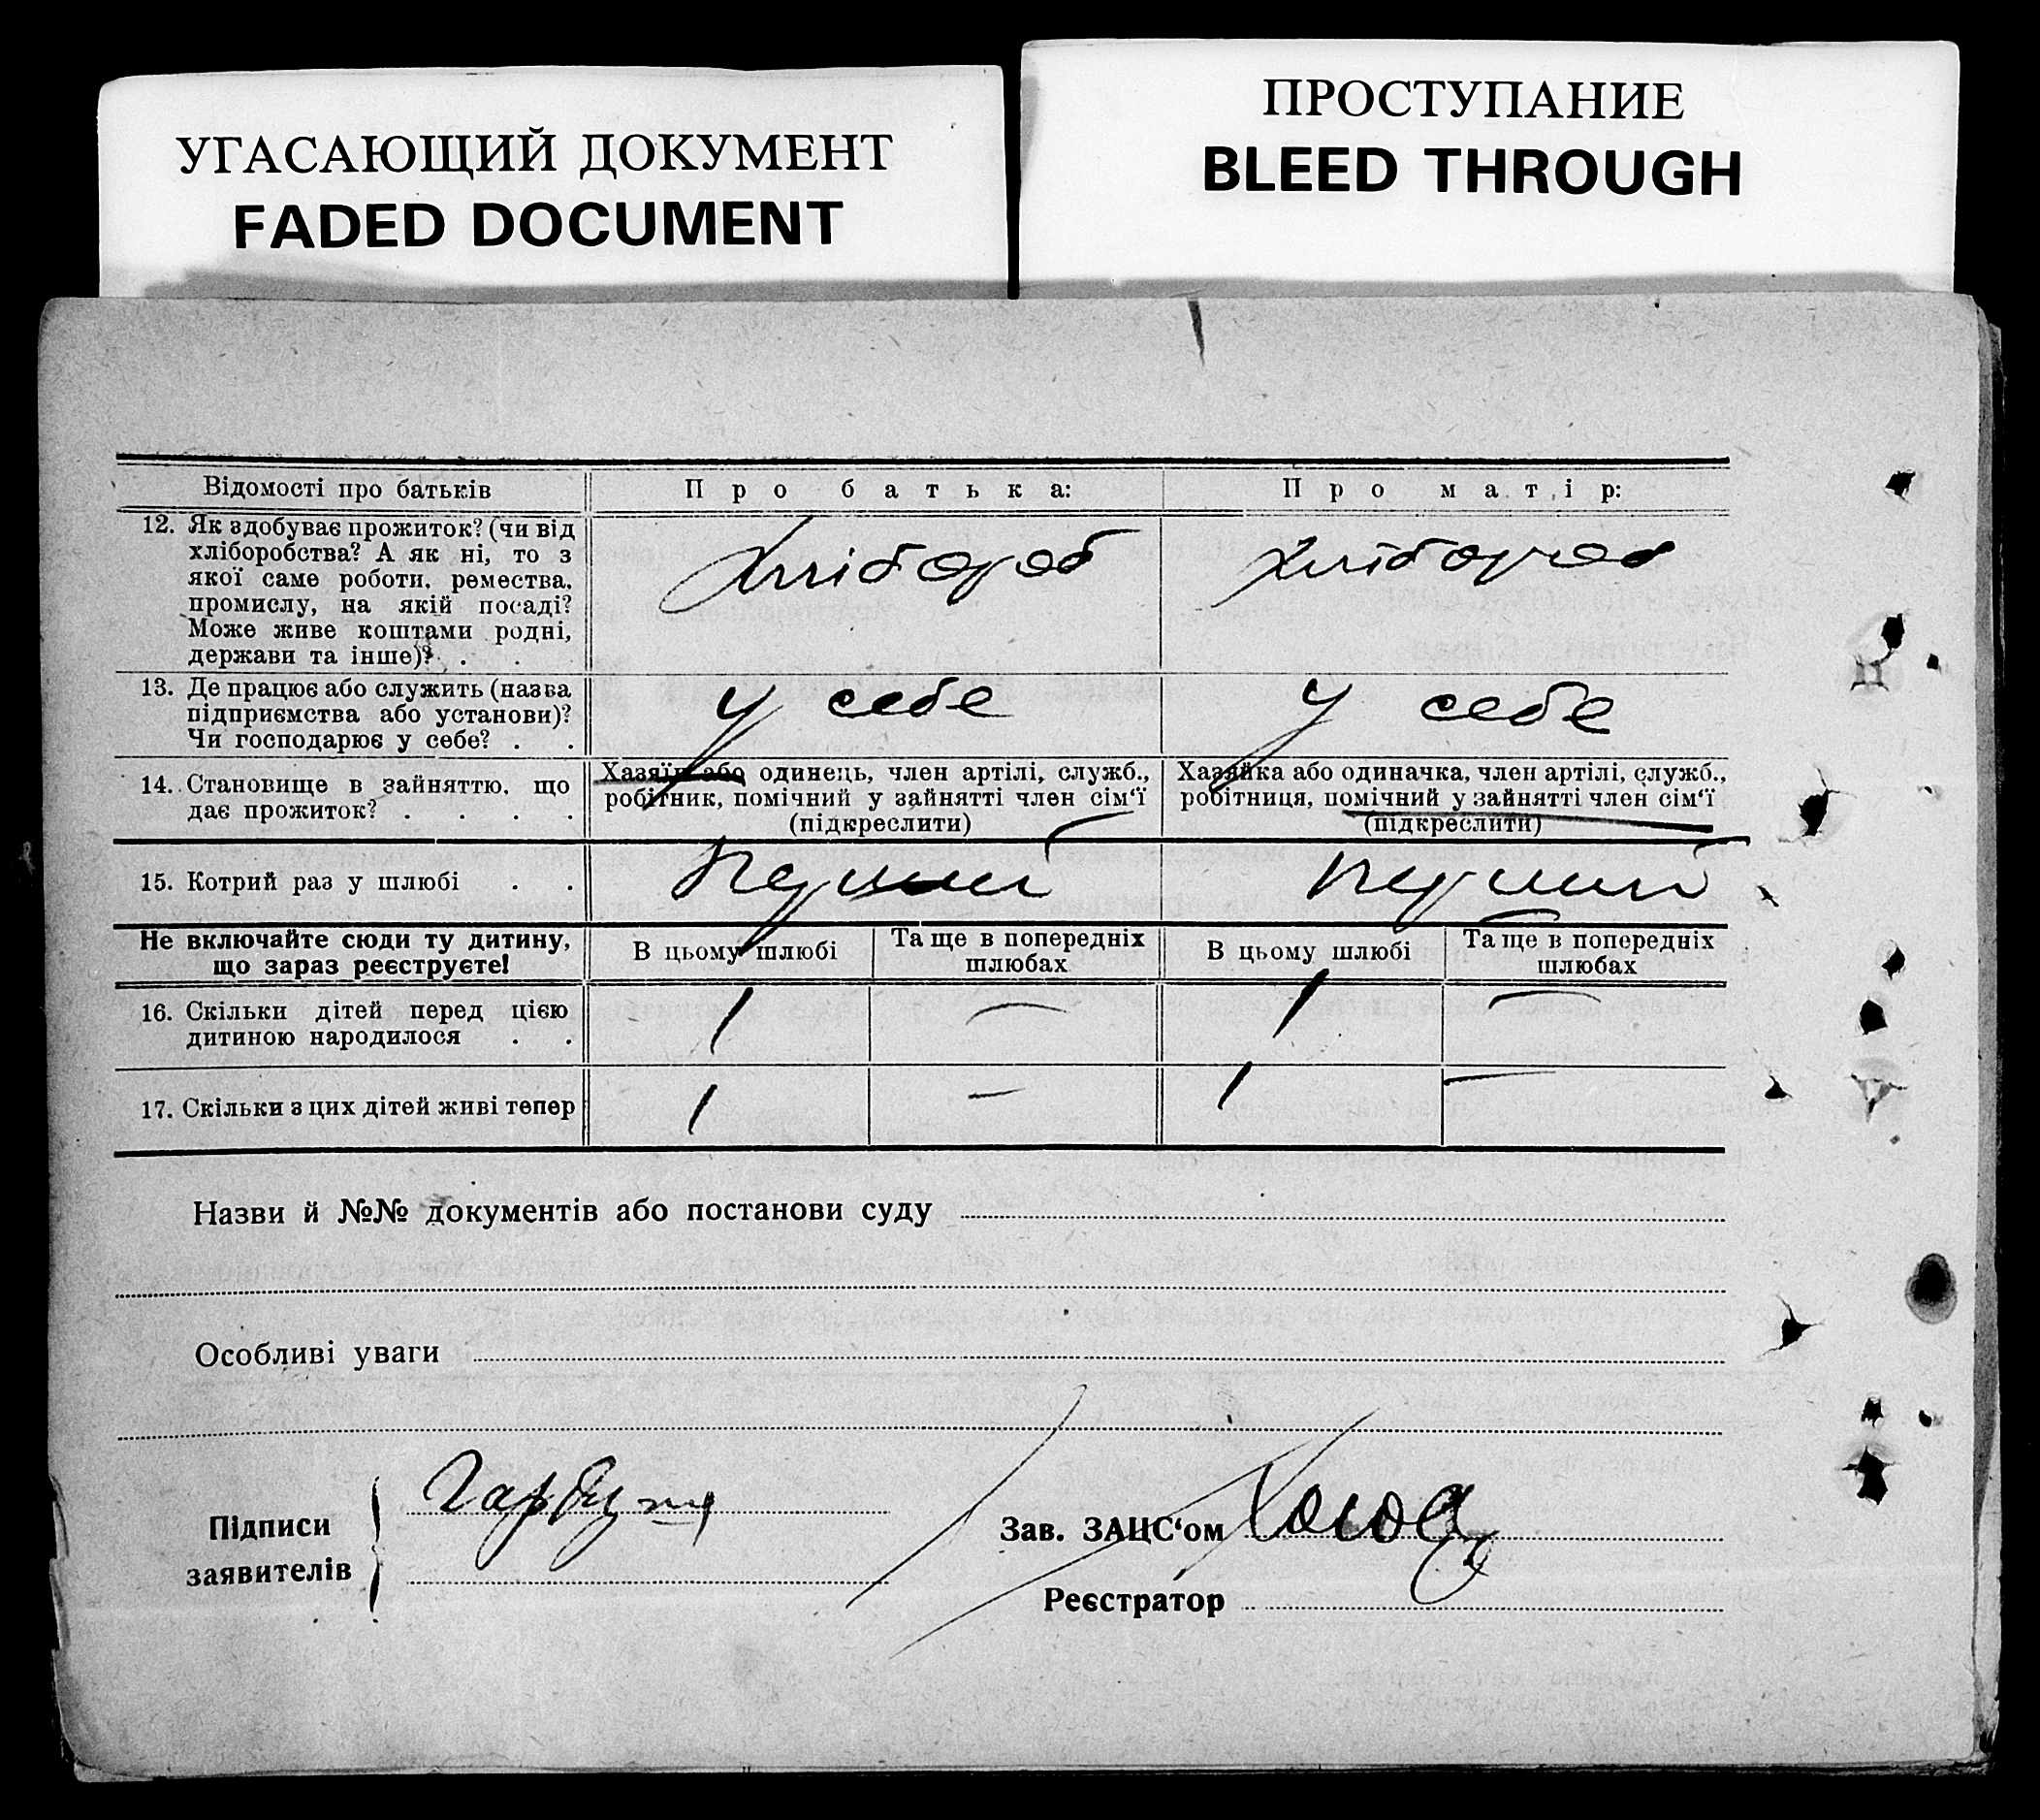 УГАСАЮЩИЙ ДОКУМЕНТ
FADED DOCUMENT
ПРОСТУПАНИЕ
BLEED THROUGH
Відомості про батьків
Про батька:
Про матір:
12. Як здобуває прожиток? (чи від
хліборобства? А як ні, то з
якої саме роботи, ремества,
промислу, на якій посаді?
Може живе коштами родні,
держави та інше)? . .
Хлібороб
Хлібороб
13. Де працює або служить (назва
підприємства або установи)?
Чи господарює у себе? . .
у себе
у себе
14. Становище в зайняттю, що
дає прожиток? . . . .
Хазяїн або одинець, член артілі, служб.,
робітник, помічний у зайнятті член сім‘ї
(підкреслити)
Хазяйка або одиначка, член артілі, служб.,
робітниця, помічний у зайнятті член сім‘ї
(підкреслити)
15. Котрий раз у шлюбі . .
Перший
Перший
Не включайте сюди ту дитину,
що зараз реєструєте!
В цьому шлюбі
Та ще в попередніх
шлюбах
В цьому шлюбі
Та ще в попередніх
шлюбах
16. Скільки дітей перед цією
дитиною народилося . .
1 — 1 —
17. Скільки з цих дітей живі тепер
1 — 1 —
Назви й №№ документів або постанови суду
Особливі уваги
Підписи
заявителів
Гарбуз
Зав. ЗАЦС‘ом
Реєстратор